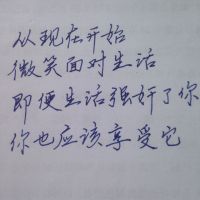 从现在开始
微笑面对生活
即便生活强奸了你
你也应该享受它